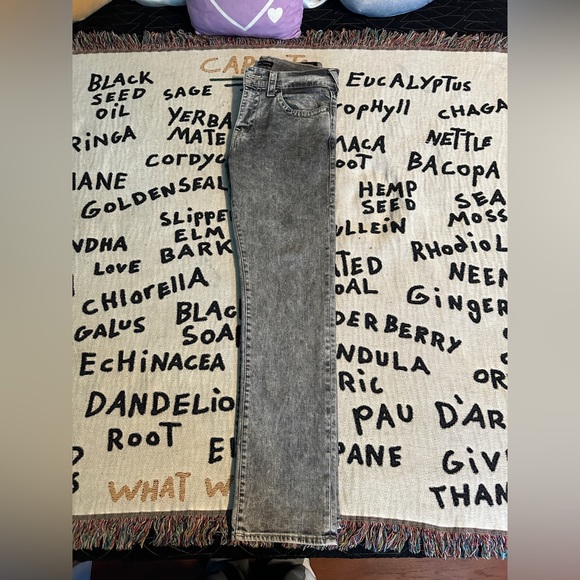 CAR
BLACK
SEED
OIL
SAGE
EUCALYPTUS
YERBA
MATE
ROPHYLL
CHAGA
RINGA
CORDYC
MACA
ROOT
NETTLE
BACOPA
GOLDENSEAL
HEMP
SEED
SEA
MOSS
SLIPPE
ELM
BARK
ULLEIN
NDHA
LOVE
RHODIOL
CHLORELLA
NEEM
GINGER
GALUS
BLAC
SOA
DERBERRY
ECHINACEA
NDULA
RIC
OR
DANDELIO
ROOT
PAU D'AR
PANE
GIV
THAN
WHAT W